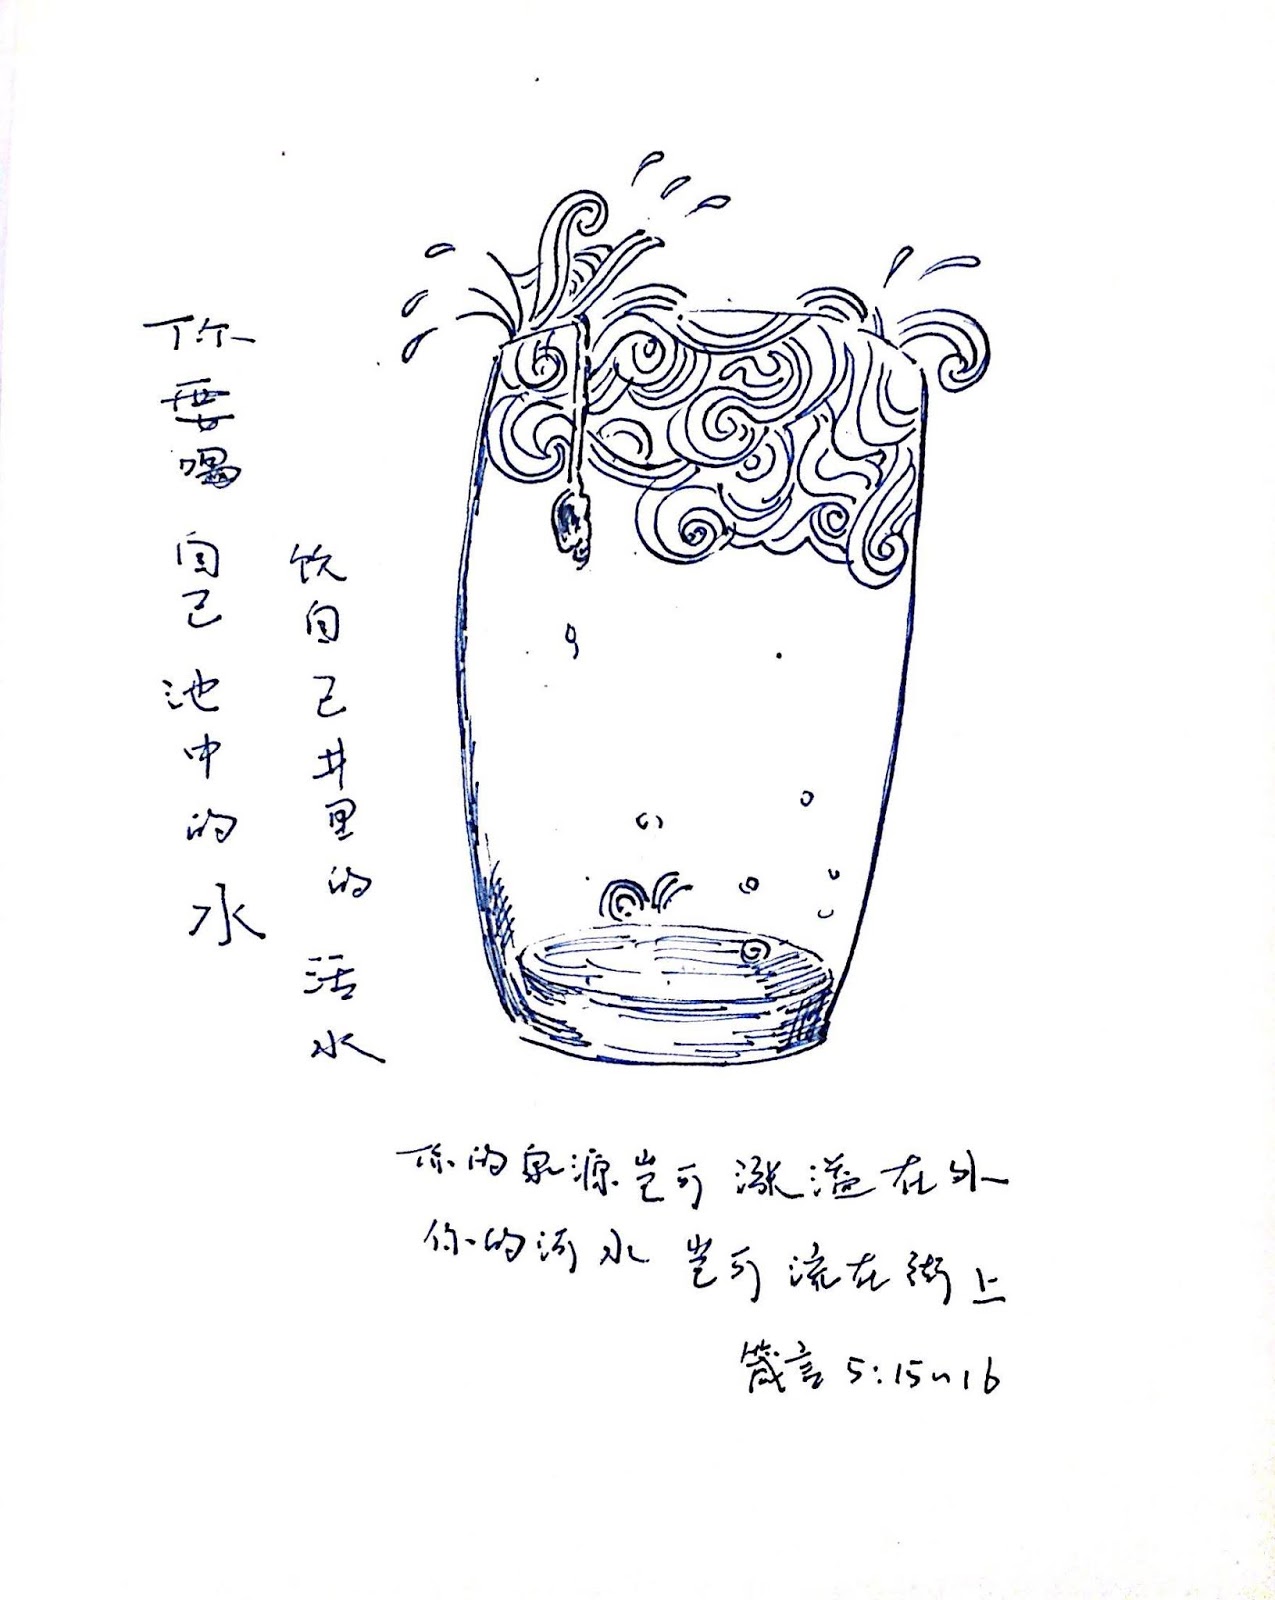 你要喝自己池中的水
饮自己井里的活水
你的泉源岂可涨溢在外
你的河水岂可流在街上
箴言 5:15~16